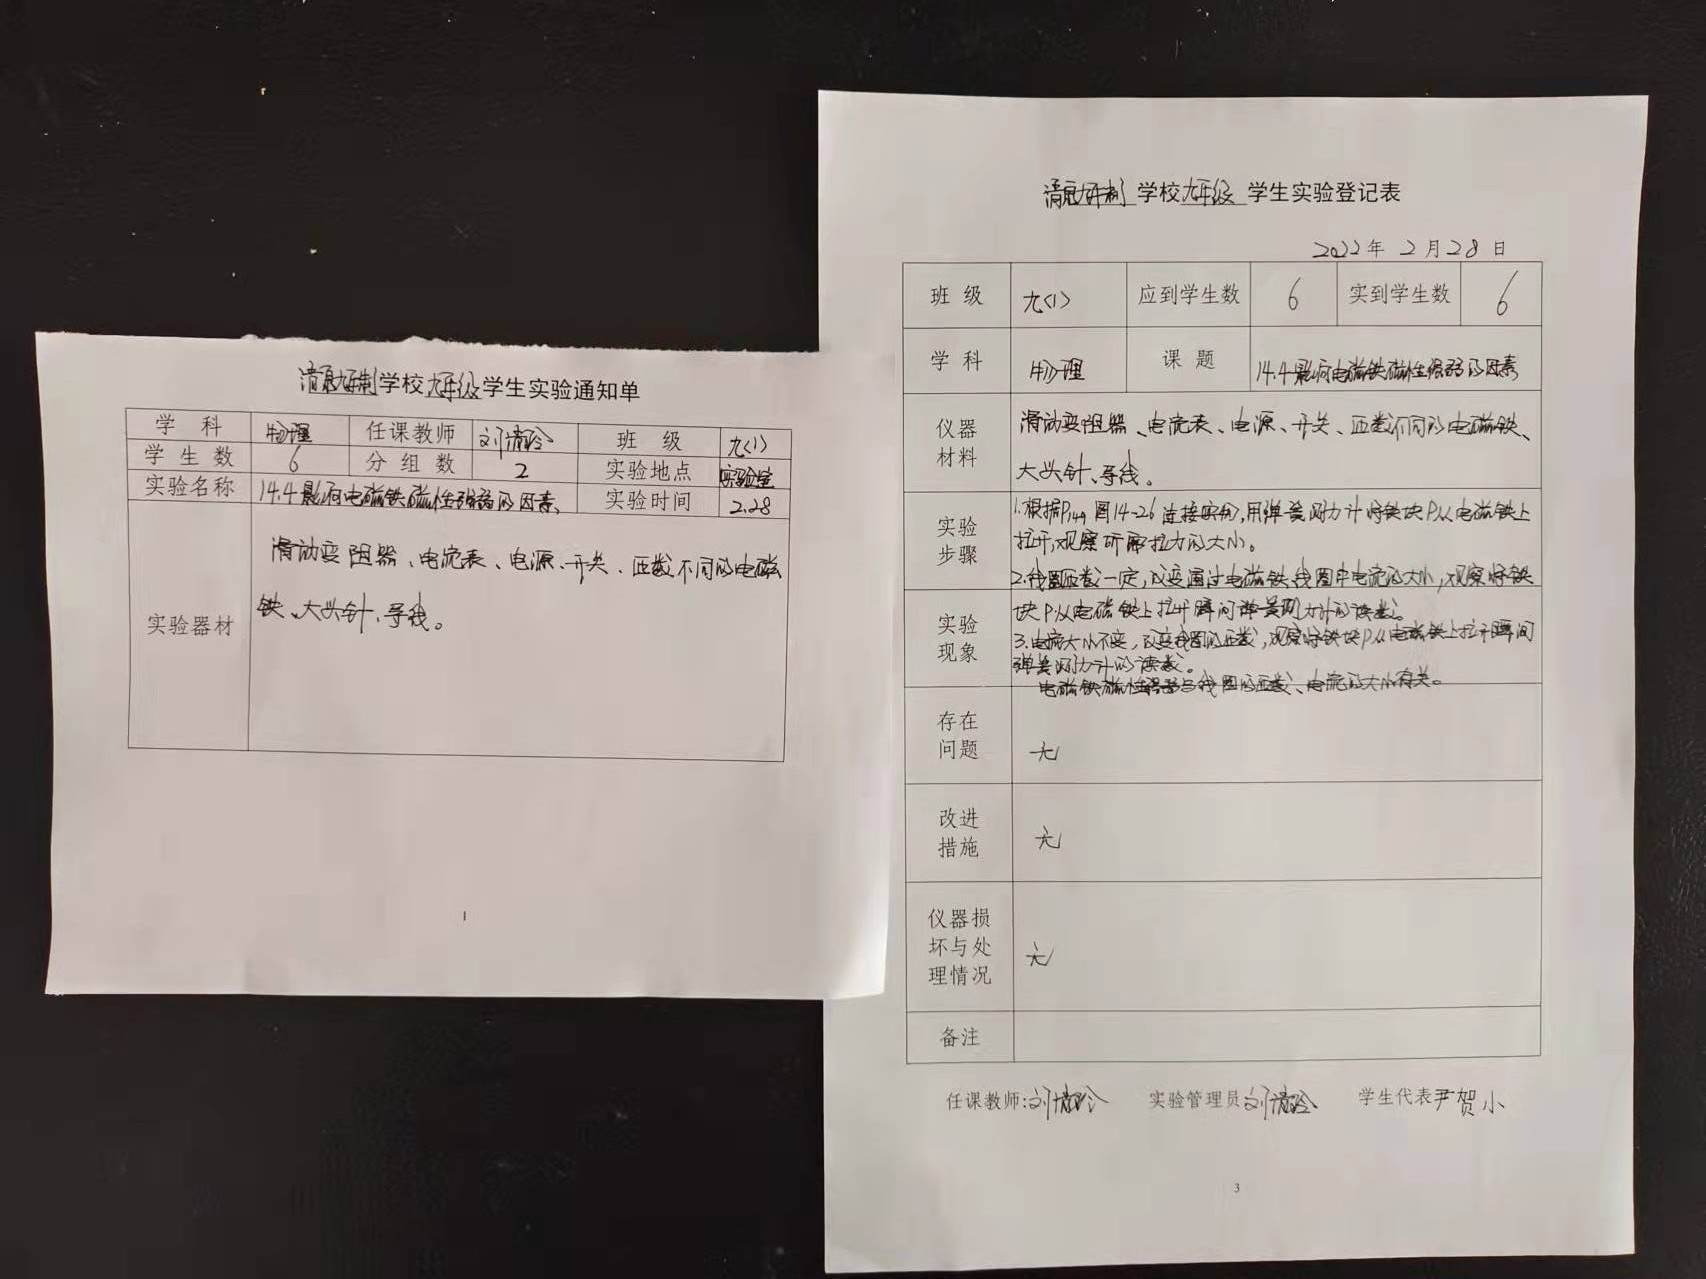 学校九年级学生实验通知单
学科 物理 任课教师 班级 九(1)
学生数 6 分组数 2 实验地点 实验室
实验名称 14.4影响电磁铁磁性强弱的因素、 实验时间 2.28
实验器材
滑动变阻器、电流表、电源、开关、匝数不同的电磁
铁、大头针、导线。
1
学校九年级 学生实验登记表
2022年 2月28日
班级 九(1) 应到学生数 6 实到学生数 6
学科 物理 课题 14.4影响电磁铁磁性强弱的因素
仪器
材料
滑动变阻器、电流表、电源、开关、匝数不同的电磁铁、
大头针、导线。
实验
步骤
1.根据P149图14-26连接实物,用弹簧测力计将铁块P从电磁铁上
拉开,观察所需拉力的大小。
2.线圈匝数一定,改变通过电磁铁线圈中电流的大小,观察将铁
实验
现象
块P从电磁铁上拉开瞬间弹簧测力计的读数。
3.电流大小不变,改变线圈的匝数,观察将铁块P从电磁铁上拉开瞬间
弹簧测力计的读数。
电磁铁磁性强弱与线圈的匝数、电流的大小有关。
存在
问题
无
改进
措施
无
仪器损
坏与处
理情况
无
备注
任课教师: 实验管理员 学生代表尹贺小
3